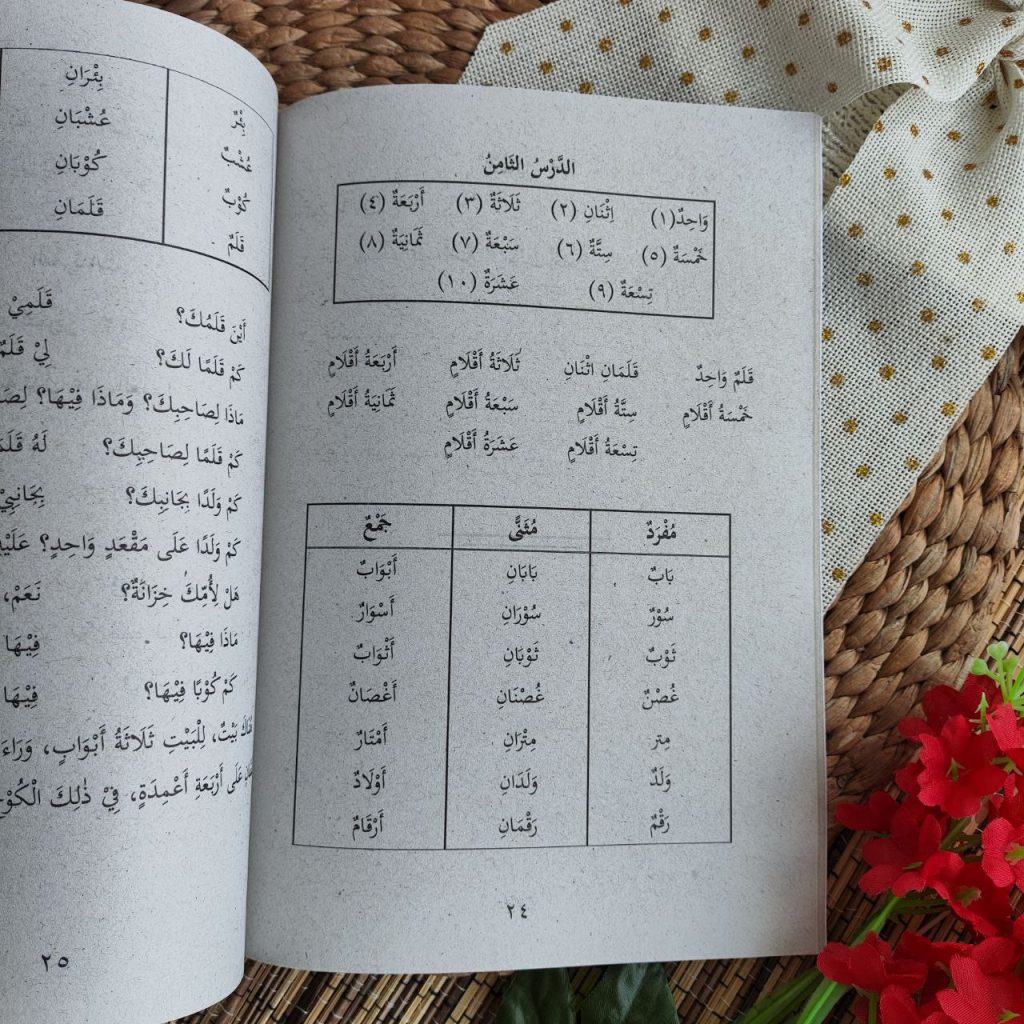 الدَّرْسُ الثَّامِنُ
وَاحِدٌ (١) اِثْنَانِ (٢) ثَلَاثَةٌ (٣) أَرْبَعَةٌ (٤)
خَمْسَةٌ (٥) سِتَّةٌ (٦) سَبْعَةٌ (٧) ثَمَانِيَةٌ (٨)
تِسْعَةٌ (٩) عَشَرَةٌ (١٠)
قَلَمٌ وَاحِدٌ قَلَمَانِ اثْنَانِ ثَلَاثَةُ أَقْلَامٍ أَرْبَعَةُ أَقْلَامٍ
خَمْسَةُ أَقْلَامٍ سِتَّةُ أَقْلَامٍ سَبْعَةُ أَقْلَامٍ ثَمَانِيَةُ أَقْلَامٍ
تِسْعَةُ أَقْلَامٍ عَشَرَةُ أَقْلَامٍ
مُفْرَدٌ مُثَنًّى جَمْعٌ
بَابٌ بَابَانِ أَبْوَابٌ
سُوْرٌ سُوْرَانِ أَسْوَارٌ
ثَوْبٌ ثَوْبَانِ أَثْوَابٌ
غُصْنٌ غُصْنَانِ أَغْصَانٌ
مِتر مِتْرَانِ أَمْتَارٌ
وَلَدٌ وَلَدَانِ أَوْلَادٌ
رَقْمٌ رَقْمَانِ أَرْقَامٌ
٢٤
بِئْرٌ بِئْرَانِ
عُشْبٌ عُشْبَانِ
كُوْبٌ كُوْبَانِ
قَلَمٌ قَلَمَانِ
أَيْنَ قَلَمُكَ؟ قَلَمِيْ
كَمْ قَلَمًا لَكَ؟ لِيْ
مَاذَا لِصَاحِبِكَ؟ وَمَاذَا فِيْهَا؟
كَمْ قَلَمًا لِصَاحِبِكَ؟ لَهُ
كَمْ وَلَدًا بِجَانِبِكَ؟ بِجَانِبِيْ
كَمْ وَلَدًا عَلَى مَقْعَدٍ وَاحِدٍ؟
هَلْ لِأُمِّكَ خِزَانَةٌ؟ نَعَمْ،
مَاذَا فِيْهَا؟ فِيْهَا
كَمْ كُوْبًا فِيْهَا؟ فِيْهَا
بَيْتٌ، لِلْبَيْتِ ثَلَاثَةُ أَبْوَابٍ،
عَلَى أَرْبَعَةِ أَعْمِدَةٍ، فِيْ ذٰلِكَ
٢٥